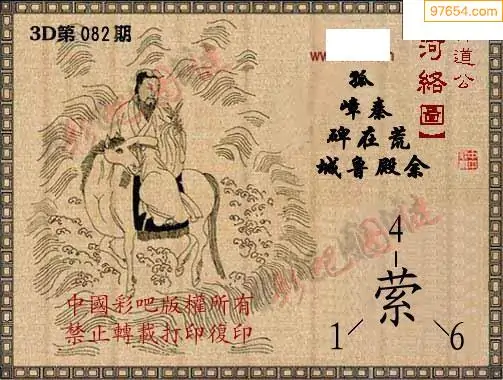 97654.com
3D第082期
道公
河絡圖】
孤
嶂秦
碑在荒
城魯殿余
4
萦
1 6
中國彩吧版權所有
禁止轉載打印復印